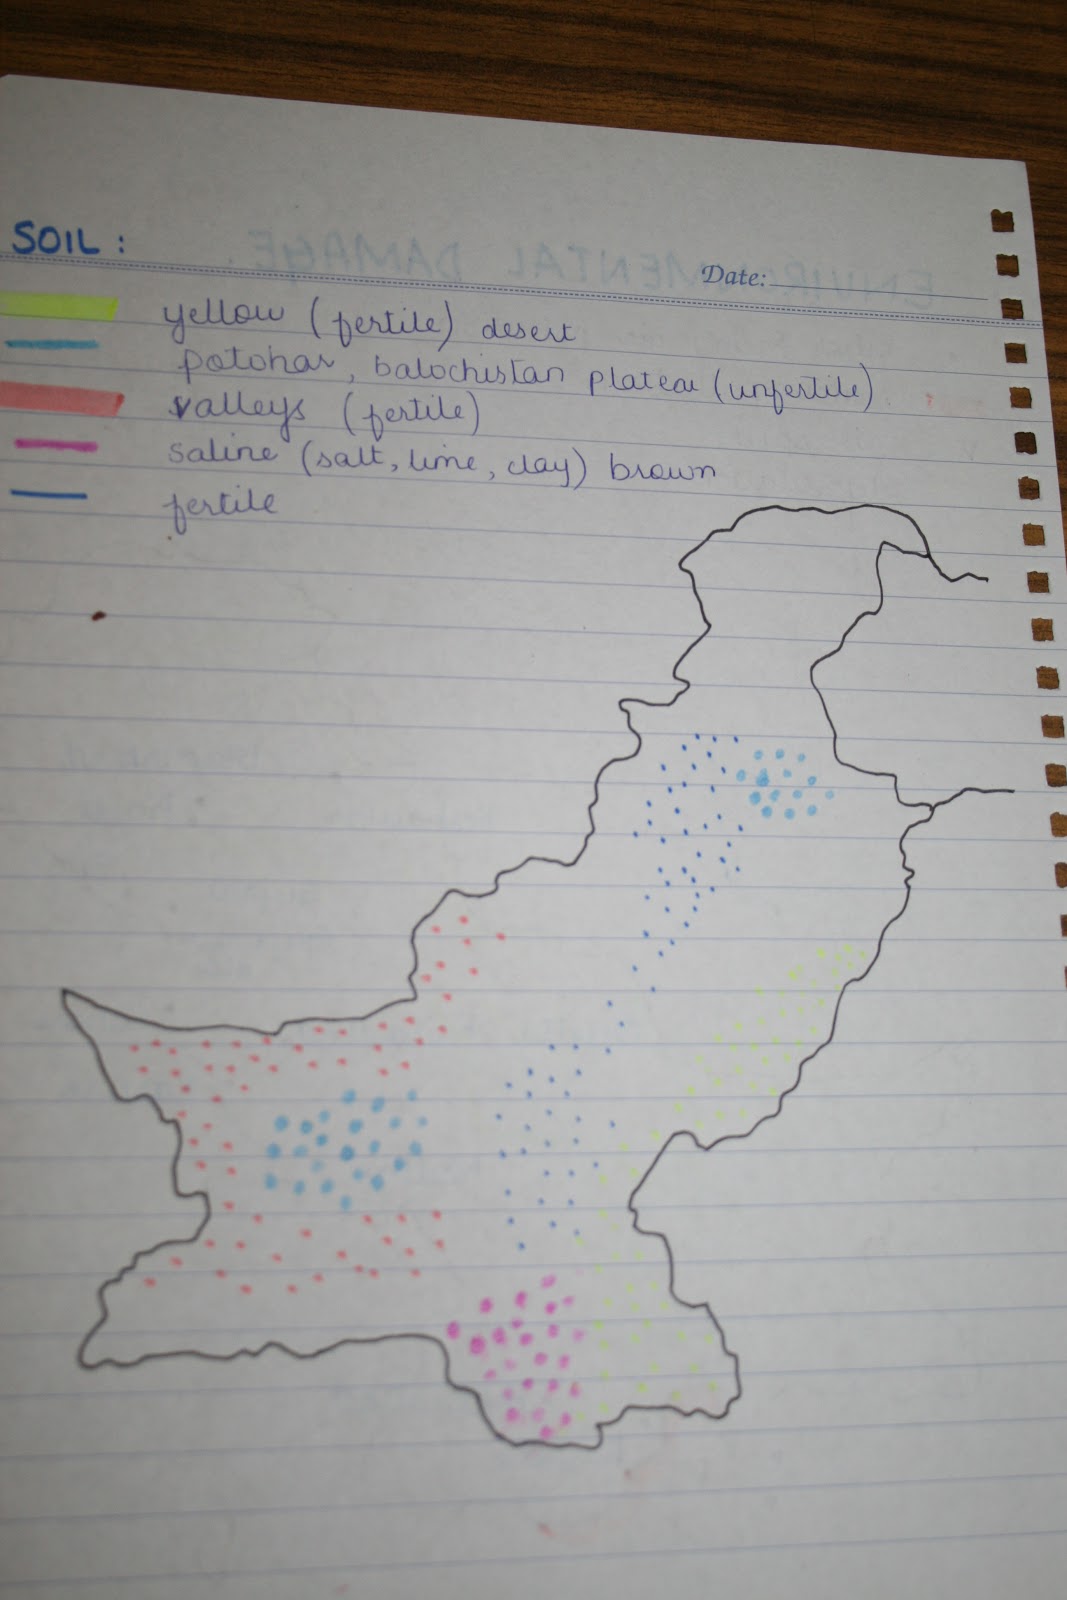 SOIL :
Date:
yellow (fertile) desert
potohar, balochistan plateau (unfertile)
valleys (fertile)
saline (salt, lime, clay) brown
fertile
ENVIRONMENTAL DAMAGE